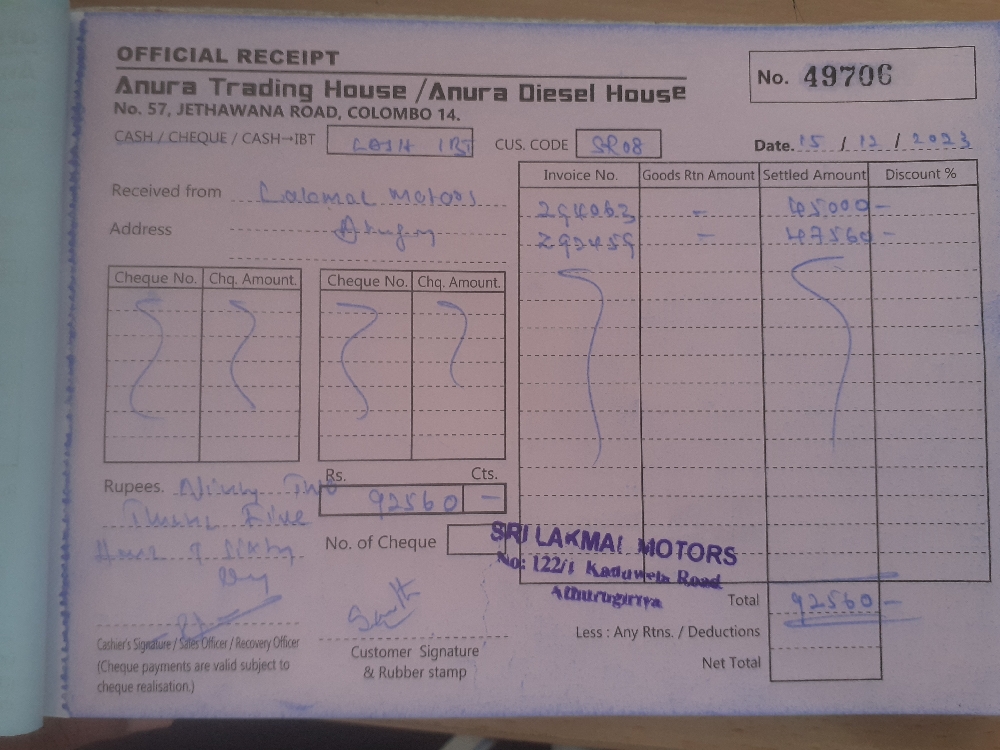 OFFICIAL RECEIPT
Anura Trading House /Anura Diesel House
No. 57, JETHAWANA ROAD, COLOMBO 14.
No. 49706
CASH / CHEQUE / CASH→IBT CASH IBT
CUS. CODE SR08
Date. 15 / 12 / 2023
Received from Motors
Address
Invoice No. Goods Rtn Amount Settled Amount Discount %
291063 - 45000 -
292459 - 47560 -
Cheque No. Chq. Amount. Cheque No. Chq. Amount.
Rs. Cts.
92560 -
Rupees. Ninty Two
Five
Sixty
No. of Cheque
SRI LAKMAI MOTORS
No: 122/1 Kaduwela Road
Athurugiriya
Total 92560 -
Less : Any Rtns. / Deductions
Net Total
Cashier's Signature / Sales Officer / Recovery Officer
(Cheque payments are valid subject to
cheque realisation.)
Customer Signature
& Rubber stamp